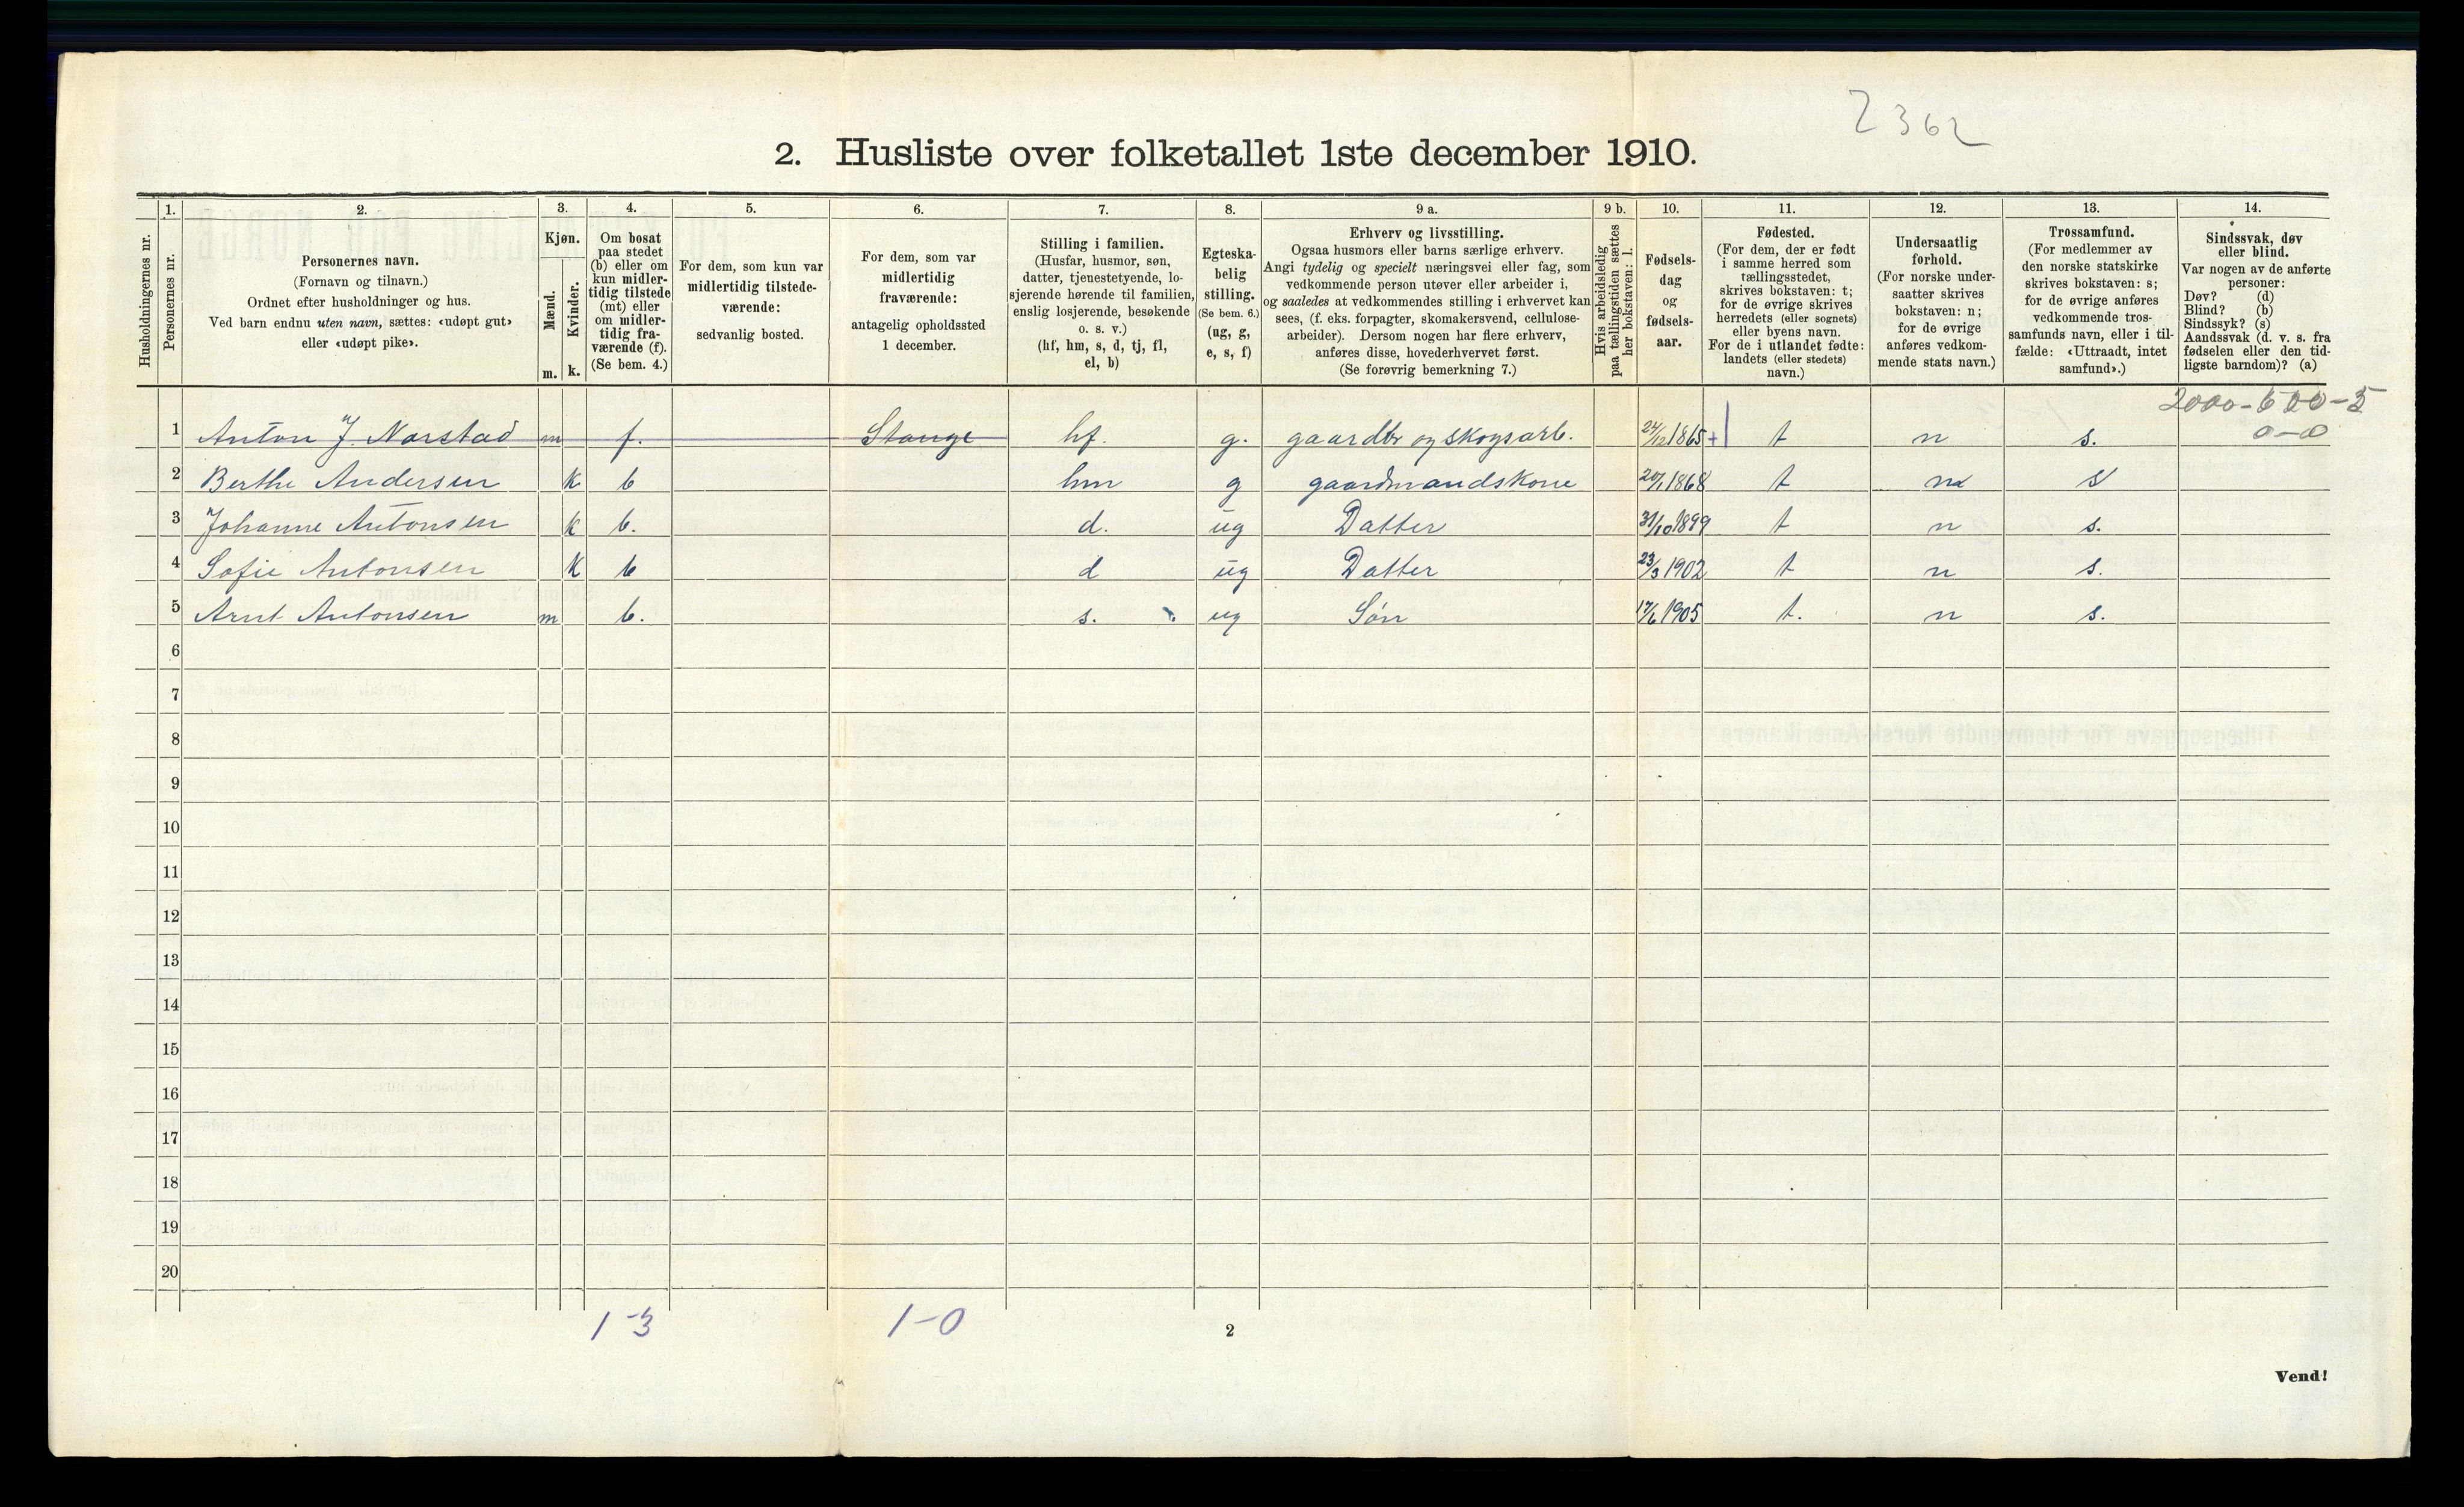 2362
2. Husliste over folketallet 1ste december 1910.
Husholdningernes nr.
1. Personernes nr.
2. Personernes navn.
(Fornavn og tilnavn.)
Ordnet efter husholdninger og hus.
Ved barn endnu uten navn, sættes: «udøpt gut»
eller «udøpt pike».
3. Kjøn.
Mænd. m.
Kvinder. k.
4. Om bosat
paa stedet
(b) eller om
kun midler-
tidig tilstede
(mt) eller
om midler-
tidig fra-
værende (f).
(Se bem. 4.)
5. For dem, som kun var
midlertidig tilstede-
værende:
sedvanlig bosted.
6. For dem, som var
midlertidig
fraværende:
antagelig opholdssted
1 december.
7. Stilling i familien.
(Husfar, husmor, søn,
datter, tjenestetyende, lo-
sjerende hørende til familien,
enslig losjerende, besøkende
o. s. v.)
(hf, hm, s, d, tj, fl,
el, b)
8. Egteska-
belig
stilling.
(Se bem. 6.)
(ug, g,
e, s, f)
9 a. Erhverv og livsstilling.
Ogsaa husmors eller barns særlige erhverv.
Angi tydelig og specielt næringsvei eller fag, som
vedkommende person utøver eller arbeider i,
og saaledes at vedkommendes stilling i erhvervet kan
sees, (f. eks. forpagter, skomakersvend, cellulose-
arbeider). Dersom nogen har flere erhverv,
anføres disse, hovederhvervet først.
(Se forøvrig bemerkning 7.)
9 b. Hvis arbeidsledig
paa tællingstiden sættes
her bokstaven: l.
10. Fødsels-
dag
og
fødsels-
aar.
11. Fødested.
(For dem, der er født
i samme herred som
tællingsstedet,
skrives bokstaven: t;
for de øvrige skrives
herredets (eller sognets)
eller byens navn.
For de i utlandet fødte:
landets (eller stedets)
navn.)
12. Undersaatlig
forhold.
(For norske under-
saatter skrives
bokstaven: n;
for de øvrige
anføres vedkom-
mende stats navn.)
13. Trossamfund.
(For medlemmer av
den norske statskirke
skrives bokstaven: s;
for de øvrige anføres
vedkommende tros-
samfunds navn, eller i til-
fælde: «Uttraadt, intet
samfund».)
14. Sindssvak, døv
eller blind.
Var nogen av de anførte
personer:
Døv? (d)
Blind? (b)
Sindssyk? (s)
Aandssvak (d. v. s. fra
fødselen eller den tid-
ligste barndom)? (a)
2000-600-5
0-0
1 Anton J. Narstad m f. Stange hf. g. gaardbr og skogsarb. 24/12 1865 + t n s.
2 Berthe Andersen k b hm g gaardmandskone 20/1 1868 t n s
3 Johanne Antonsen k b. d. ug Datter 31/10 1899 t n s.
4 Sofie Antonsen k b d ug Datter 23/3 1902 t n s.
5 Arnt Antonsen m b. s. ug Søn 17/6 1905 t. n s.
6
7
8
9
10
11
12
13
14
15
16
17
18
19
20
1-3 1-0
2
Vend!